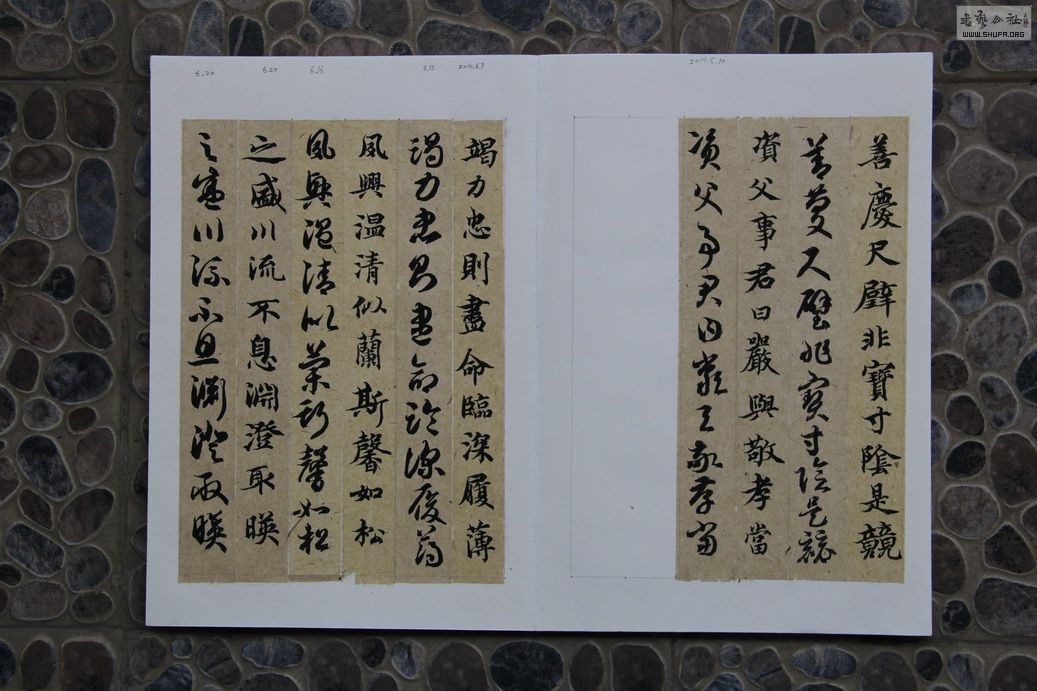 書藝公社
WWW.SHUFA.ORG
善慶尺璧非寶寸陰是競
善慶尺璧非寶寸陰是競
資父事君曰嚴與敬孝當
資父事君曰嚴與敬孝當
6.13
6.20
竭力忠則盡命臨深履薄
竭力忠則盡命臨深履薄
夙興温清似蘭斯馨如松
夙興温清似蘭斯馨如松
之盛川流不息淵澄取暎
之盛川流不息淵澄取暎